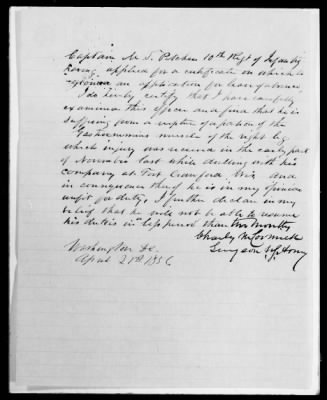 Captain M. S. Pitcher 10th Regt of Infantry
having applied for a certificate on which to
ground an application for leave of absence
I do hereby certify that I have carefully
examined this officer and find that he is
suffering from a rupture of a portion of the
Gastrocnemius muscle of the right leg
which injury was received in the early part
of November last while drilling with his
company at Fort Crawford Wis. and
in consequence thereof he is in my opinion
unfit for duty. I further declare in my
belief that he will not be able to resume
his duties in less period than two months
Charles McCormick
Surgeon U.S. Army
Washington D.C.
April 21st 1856